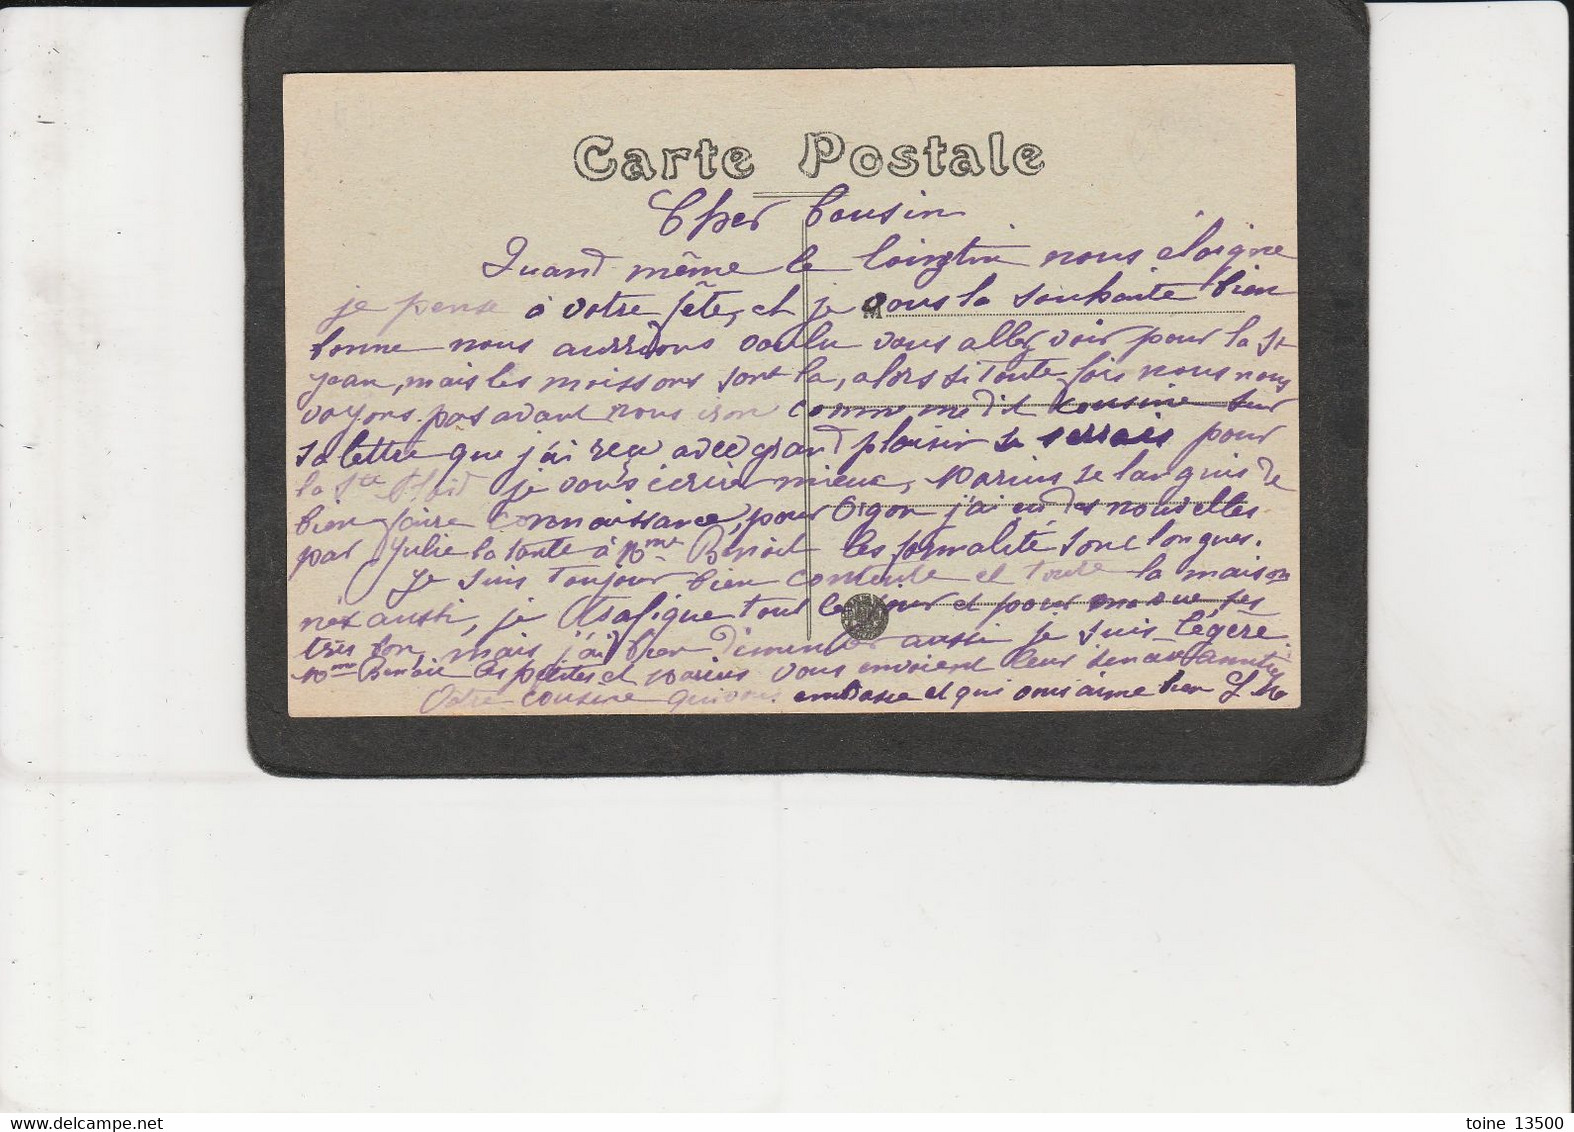 Carte Postale
Cher Cousin
Quand même le nous éloigne
je pense à votre fête, et je vous la souhaite bien
bonne nous aurrions voulu vous aller voir pour la St
Jean, mais les moissons sont la, alors si toute fois nous nous
voyons pas avant nous iron comme me dit cousine sur
sa lettre que j'ai reçu avec grand plaisir se serrais pour
la Ste je vous écrirer mieux, Marius se languis de
bien faire connaissance, pour Orgon j'ai eu des nouvelles
par Julie la tante à Mme Benoit les formalité sont longues.
Je suis toujour bien contente et toute la maison
n'ex aussi, je tous les jour et pour ses
très bon, mais j'ai bien diminuer aussi je suis légère
Mme Benoit les petites et Marius vous envoient leur amitié
Votre cousine qui vous embrasse et qui vous aime bien
toine 13500